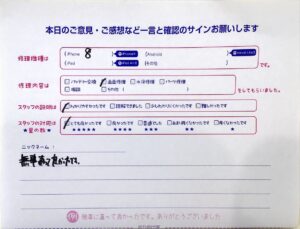 本日のご意見・ご感想など一言と確認のサインお願いします
修理機種は
iPhone 8
Android
iPad
その他
です。
修理内容は
バッテリー交換 画面修理 水没修理 パーツ修理
確認 その他
をしてもらいました。
スタッフの説明は
わかりやすかったです 理解できました 少しわかりにくかったです 難しかったです
スタッフの対応は
★星の数★
とても良かったです 良かったです 普通でした あまり良くなかったです 良くなかったです
★★★★★ ★★★★ ★★★ ★★ ★
ニックネーム:
無事直って良かったです。
機楽に寄って良かったです。ありがとうございました